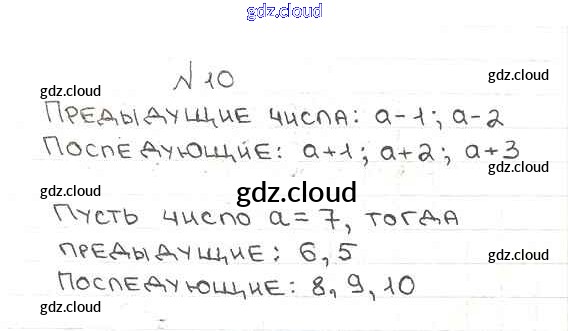 gdz.cloud
№10
gdz.cloud gdz.cloud
ПРЕДЫДУЩИЕ ЧИСЛА: a-1; a-2
ПОСЛЕДУЮЩИЕ: a+1; a+2; a+3
gdz.cloud gdz.cloud
gdz.cloud
ПУСТЬ ЧИСЛО a=7, ТОГДА
ПРЕДЫДУЩИЕ: 6,5
gdz.cloud gdz.cloud
ПОСЛЕДУЮЩИЕ: 8, 9, 10
gdz.cloud gdz.cloud